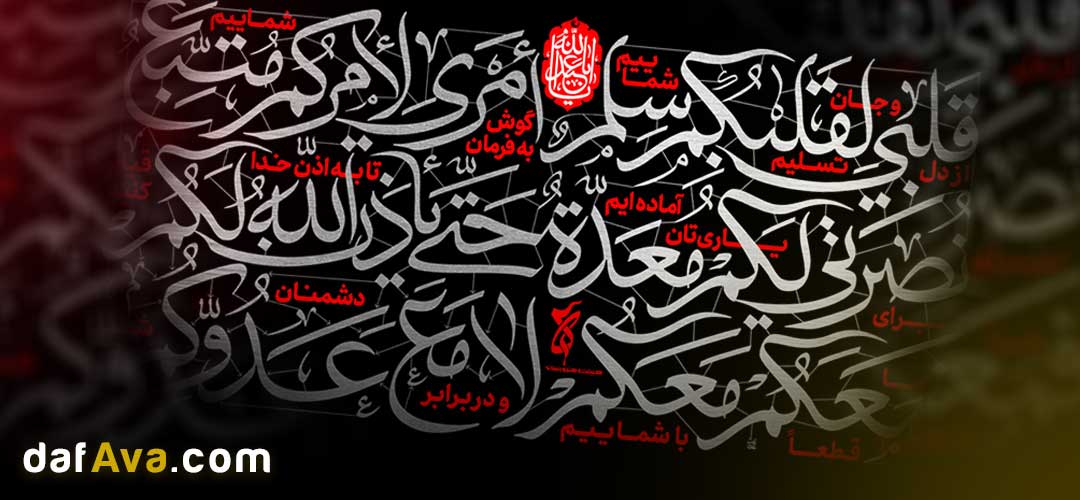 قلبي لقلبكم سلم أمري لأمركم متبع
از دل و جان تسلیم شماییم گوش به فرمان شماییم
یا اباعبدالله
نصرتي لكم معدة حتى يأذن الله لكم
برای یاری تان آماده ایم تا به اذن خدا
معكم معكم لا مع عدوكم
قطعاً با شماییم و در برابر دشمنان
dafAva.com